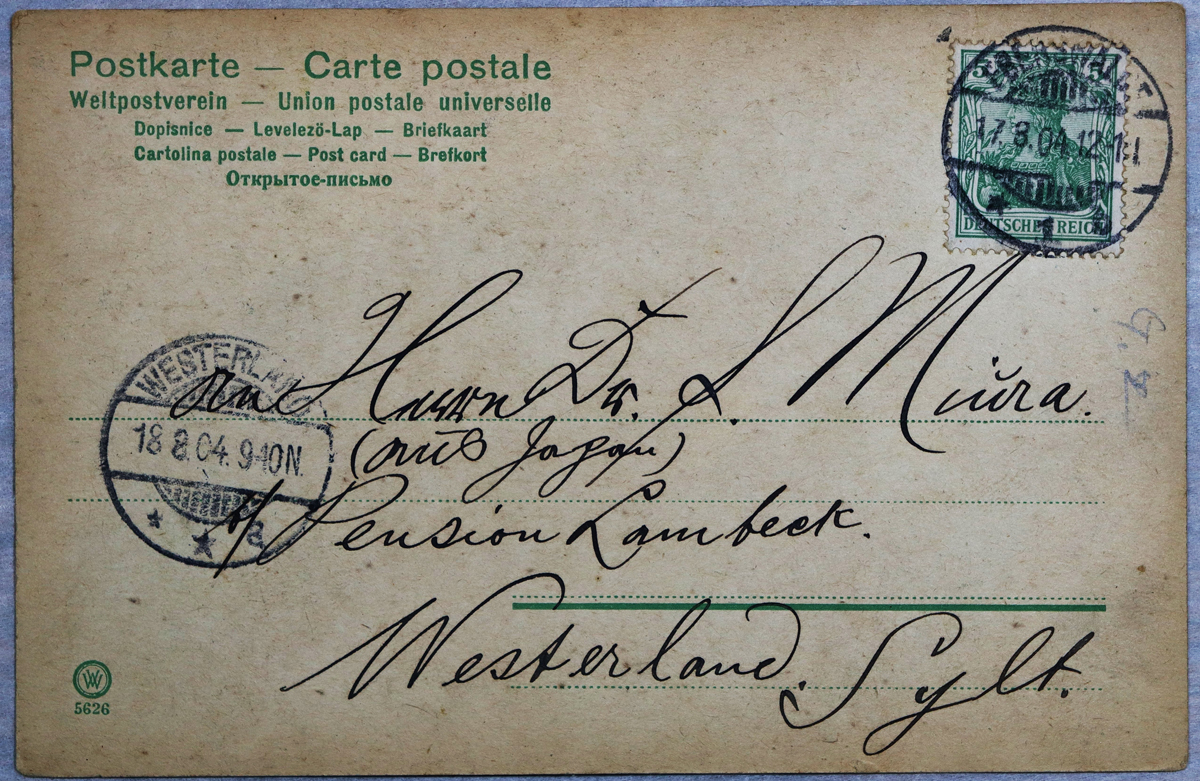 Postkarte — Carte postale
Weltpostverein — Union postale universelle
Dopisnice — Levelezö-Lap — Briefkaart
Cartolina postale — Post card — Brefkort
Открытое-письмо
5 5
17.8.04.12-1
DEUTSCHES REICH
1
WESTERLAND
18.8.04.9-10N.
* * a
an Herrn Dr. S. Miura.
(aus Japan)
Pension Lambeck.
Westerland. Sylt.
5626